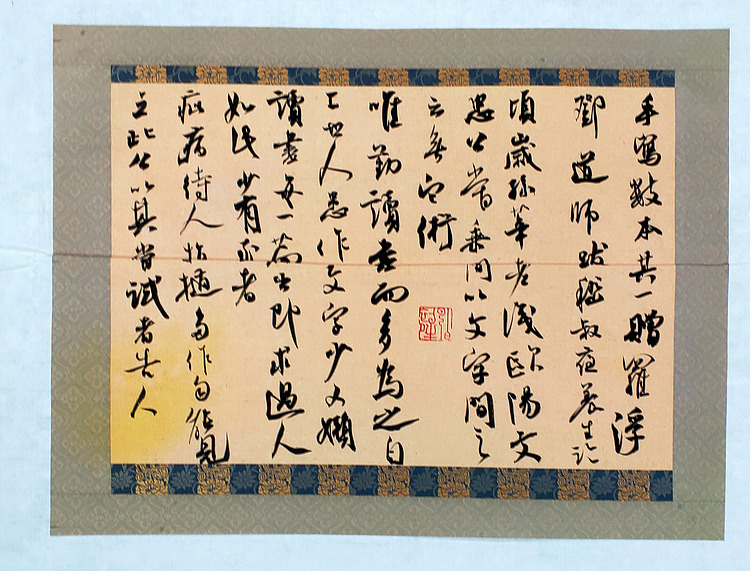 手寫數本其一贈羅浮
鄧道師跋嵇叔夜養生論
頃歲孫莘老識歐陽文
忠公嘗乘間以文字問之
云無它術
唯勤讀書而多為之自
工世人患作文字少又嬾
讀書每一篇出即求過人
如此少有至者
疵病待人指擿多作自能見
之此公以其嘗試者告人